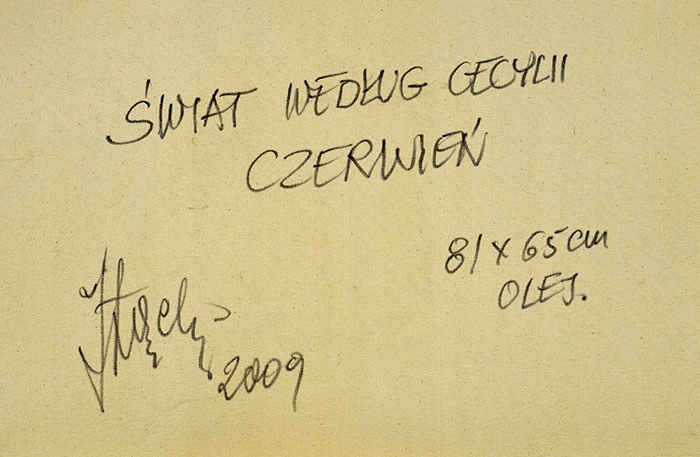 ŚWIAT WEDŁUG CECYLII
CZERWIEŃ
81 x 65 cm
OLEJ.
2009